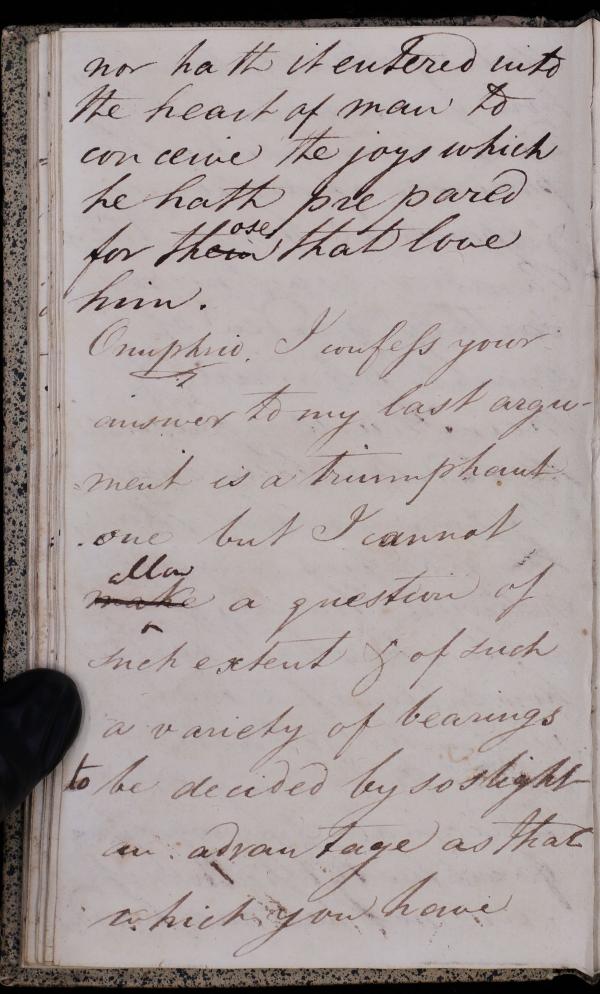 nor hath it entered into
the heart of man to
conceive the joys which
he hath prepared
for them ose that love
him.
Onuphrio. I confess your
answer to my last argu-
ment is a triumphant
one but I cannot
allow
make a question of
such extent & of such
a variety of bearings
to be decided by so slight
an advantage as that
which you have